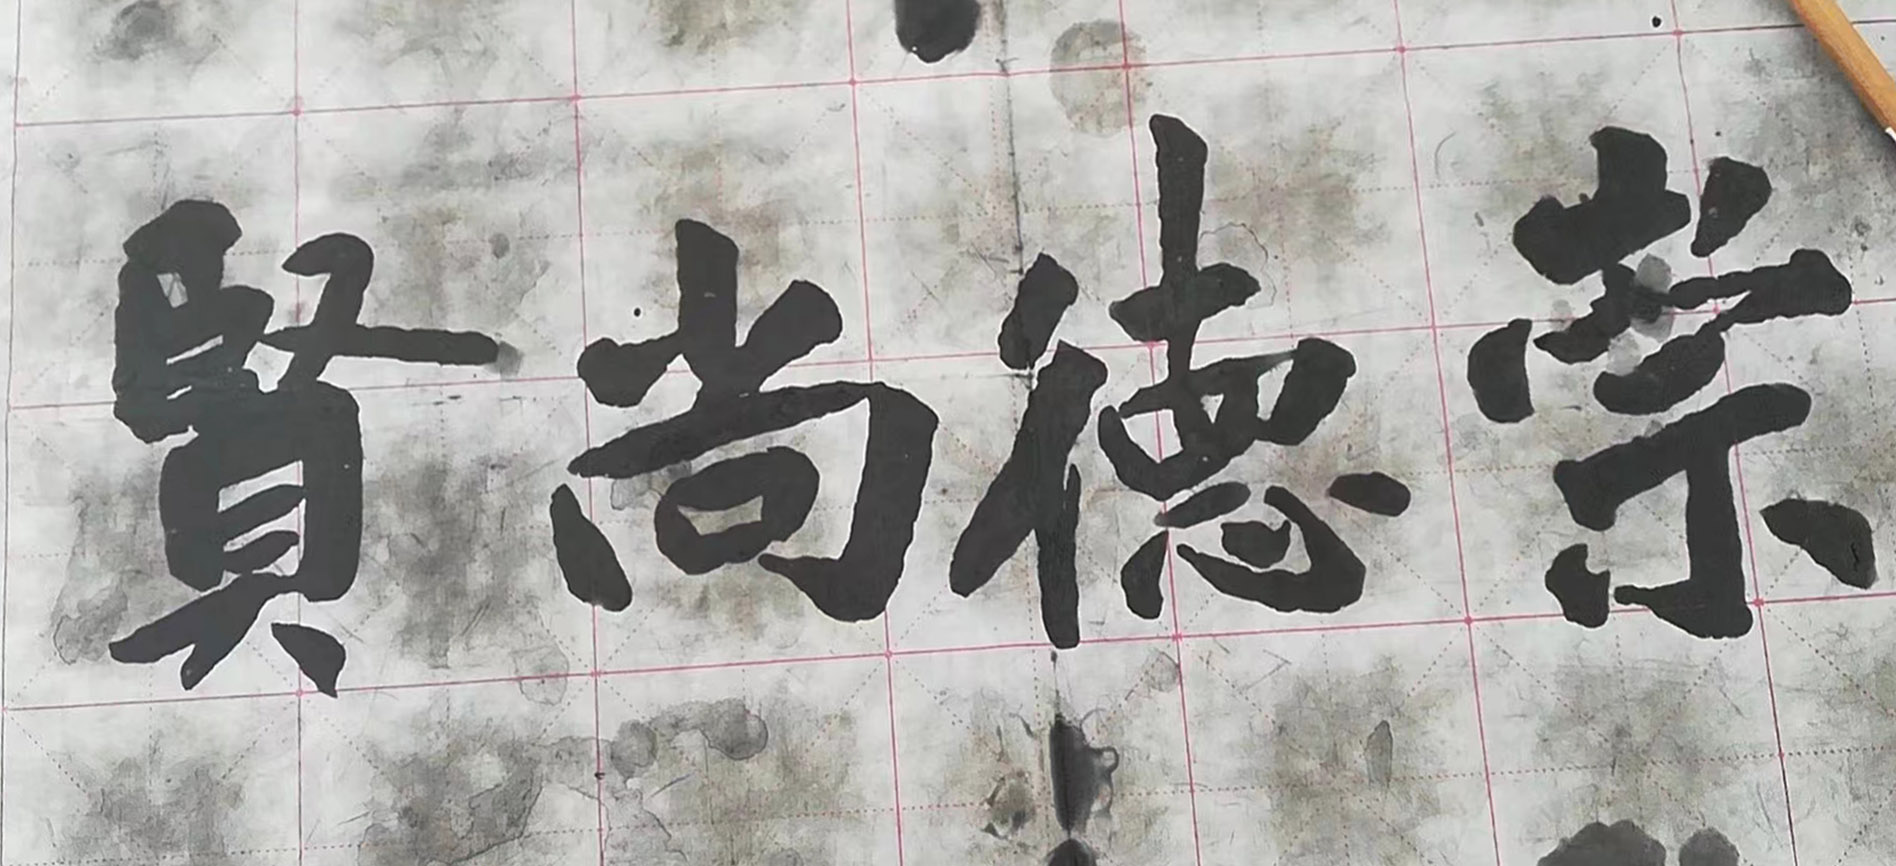 崇德尚賢